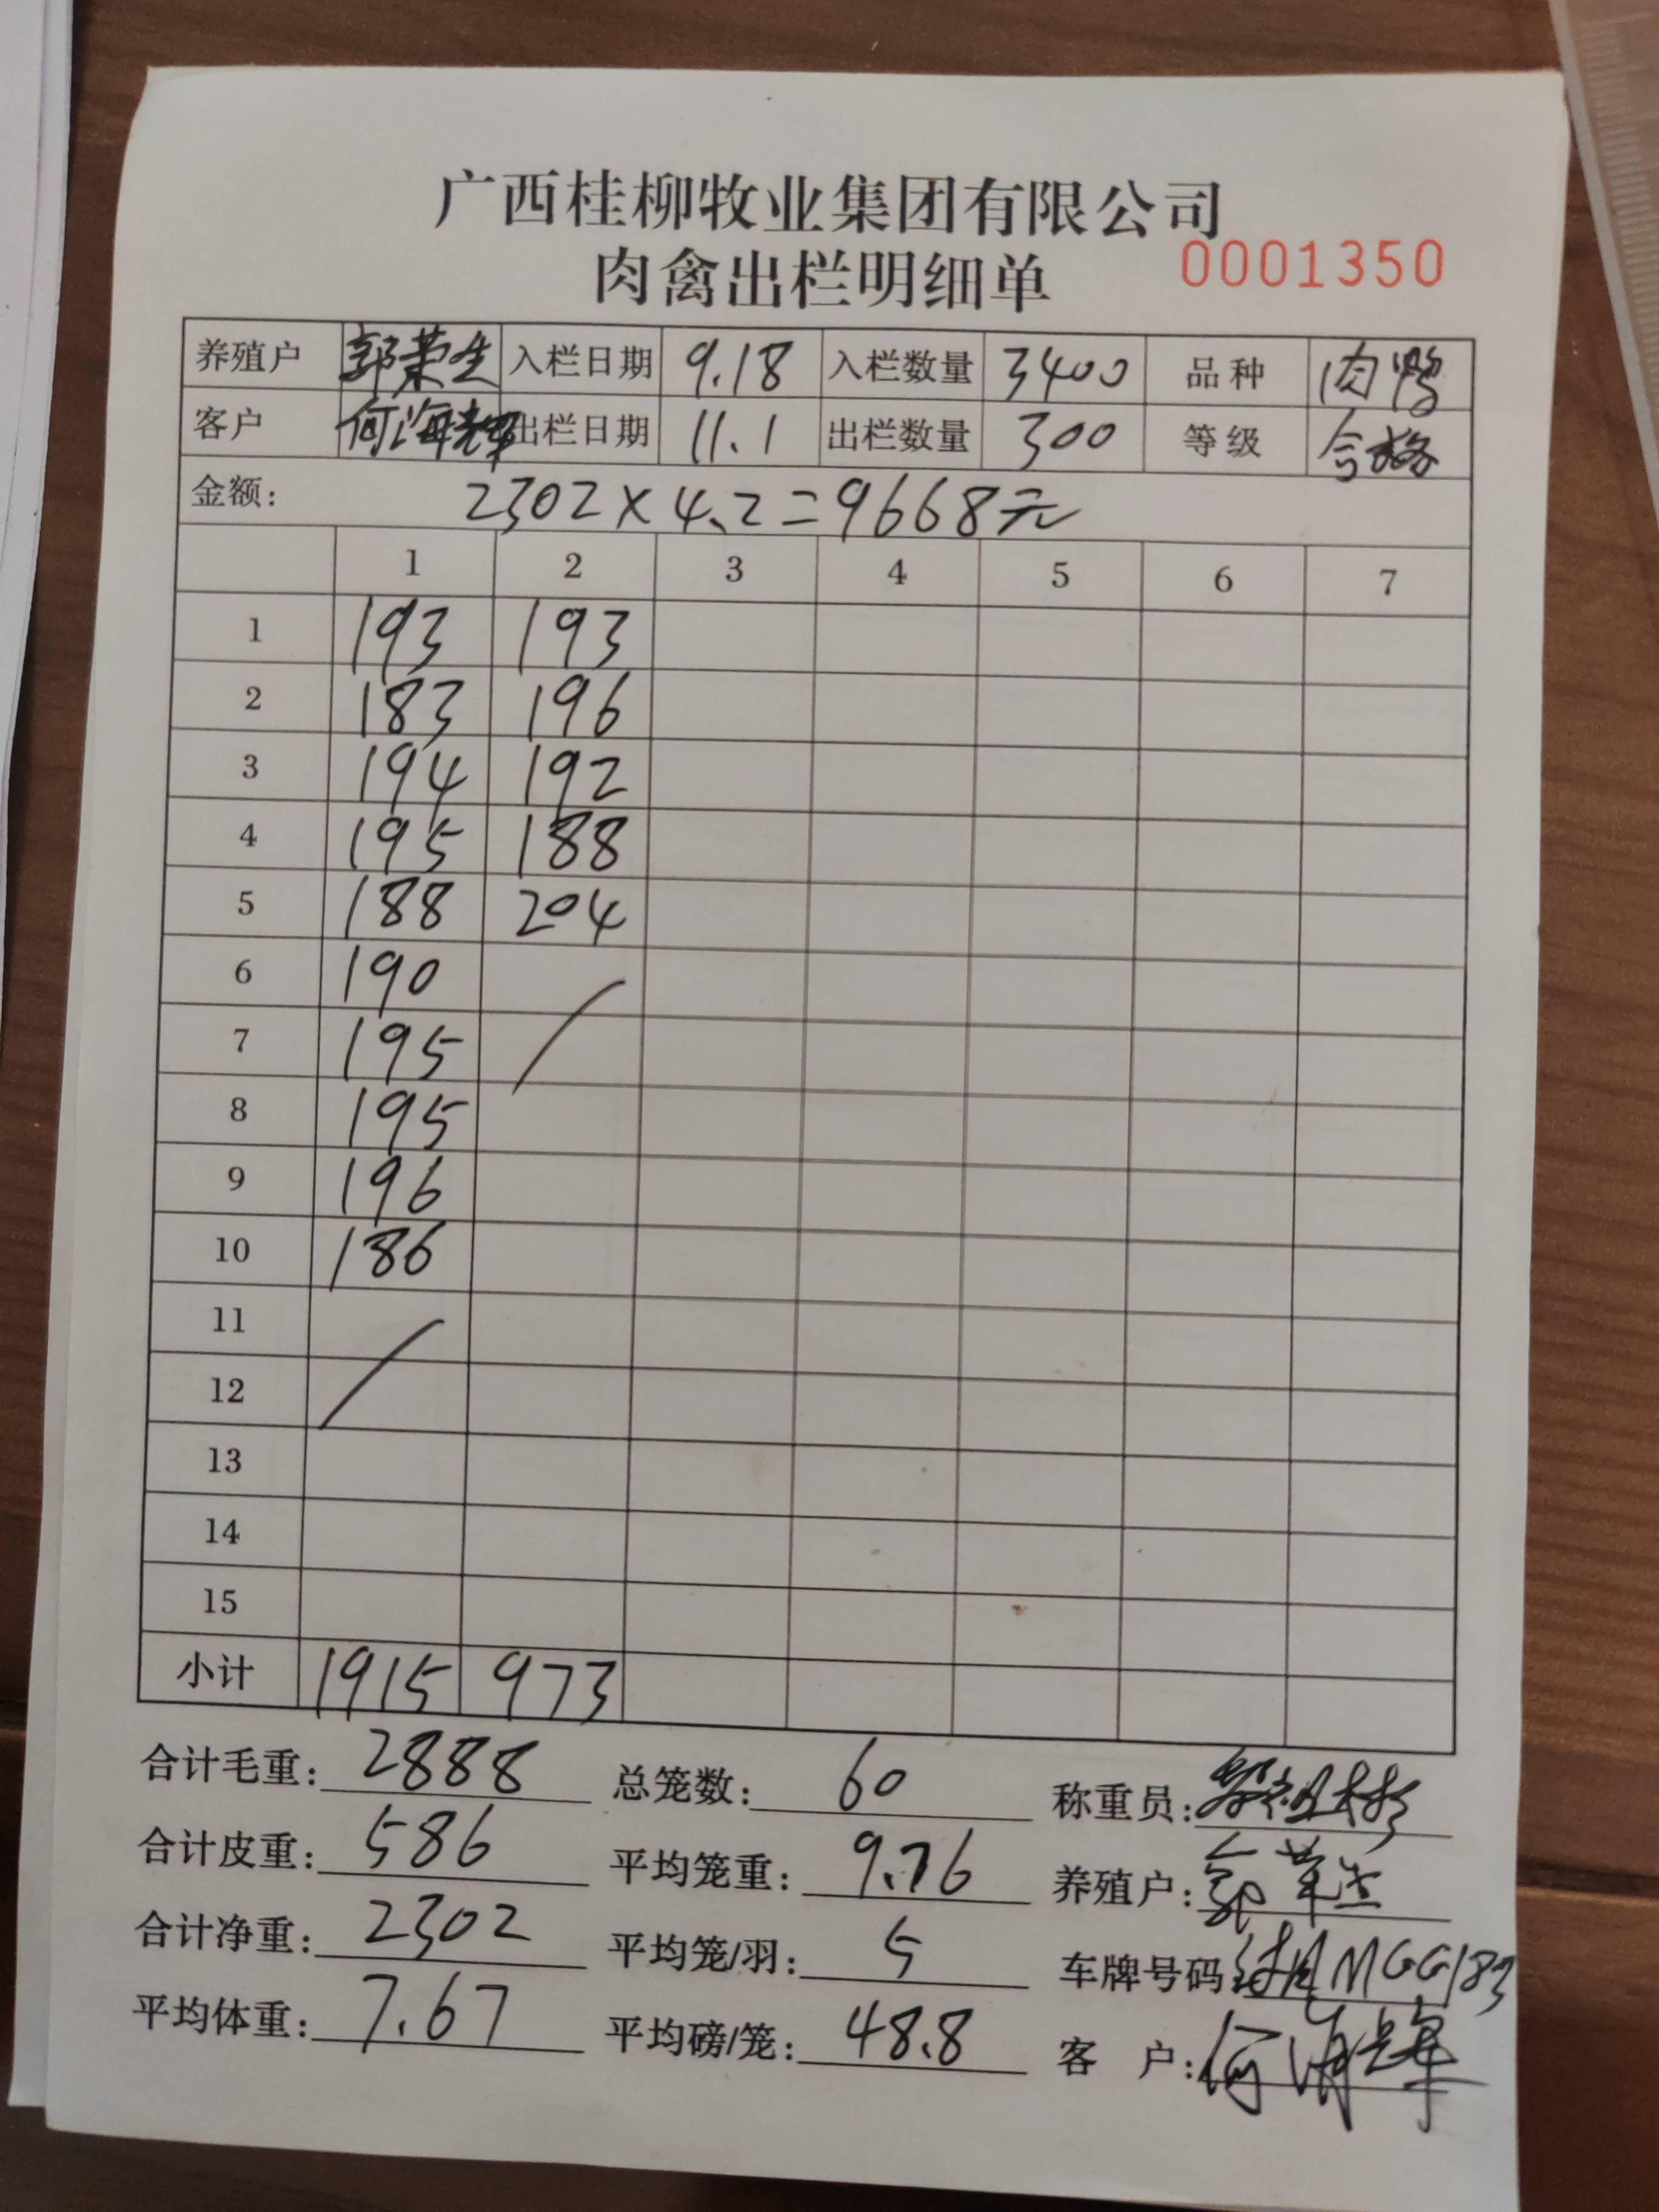 广西桂柳牧业集团有限公司
肉禽出栏明细单 0001350
养殖户 郭荣生 入栏日期 9.18 入栏数量 3400 品种 肉鸭
客户 何海辉 出栏日期 11.1 出栏数量 300 等级 合格
金额: 2302×4.2=9668元
1 2 3 4 5 6 7
1 193 193
2 183 196
3 194 192
4 195 188
5 188 204
6 190
7 195
8 195
9 196
10 186
11
12
13
14
15
小计 1915 973
合计毛重: 2888 总笼数: 60 称重员:
合计皮重: 586 平均笼重: 9.76 养殖户: 郭荣生
合计净重: 2302 平均笼/羽: 5 车牌号码 MGG183
平均体重: 7.67 平均磅/笼: 48.8 客户: 何海辉